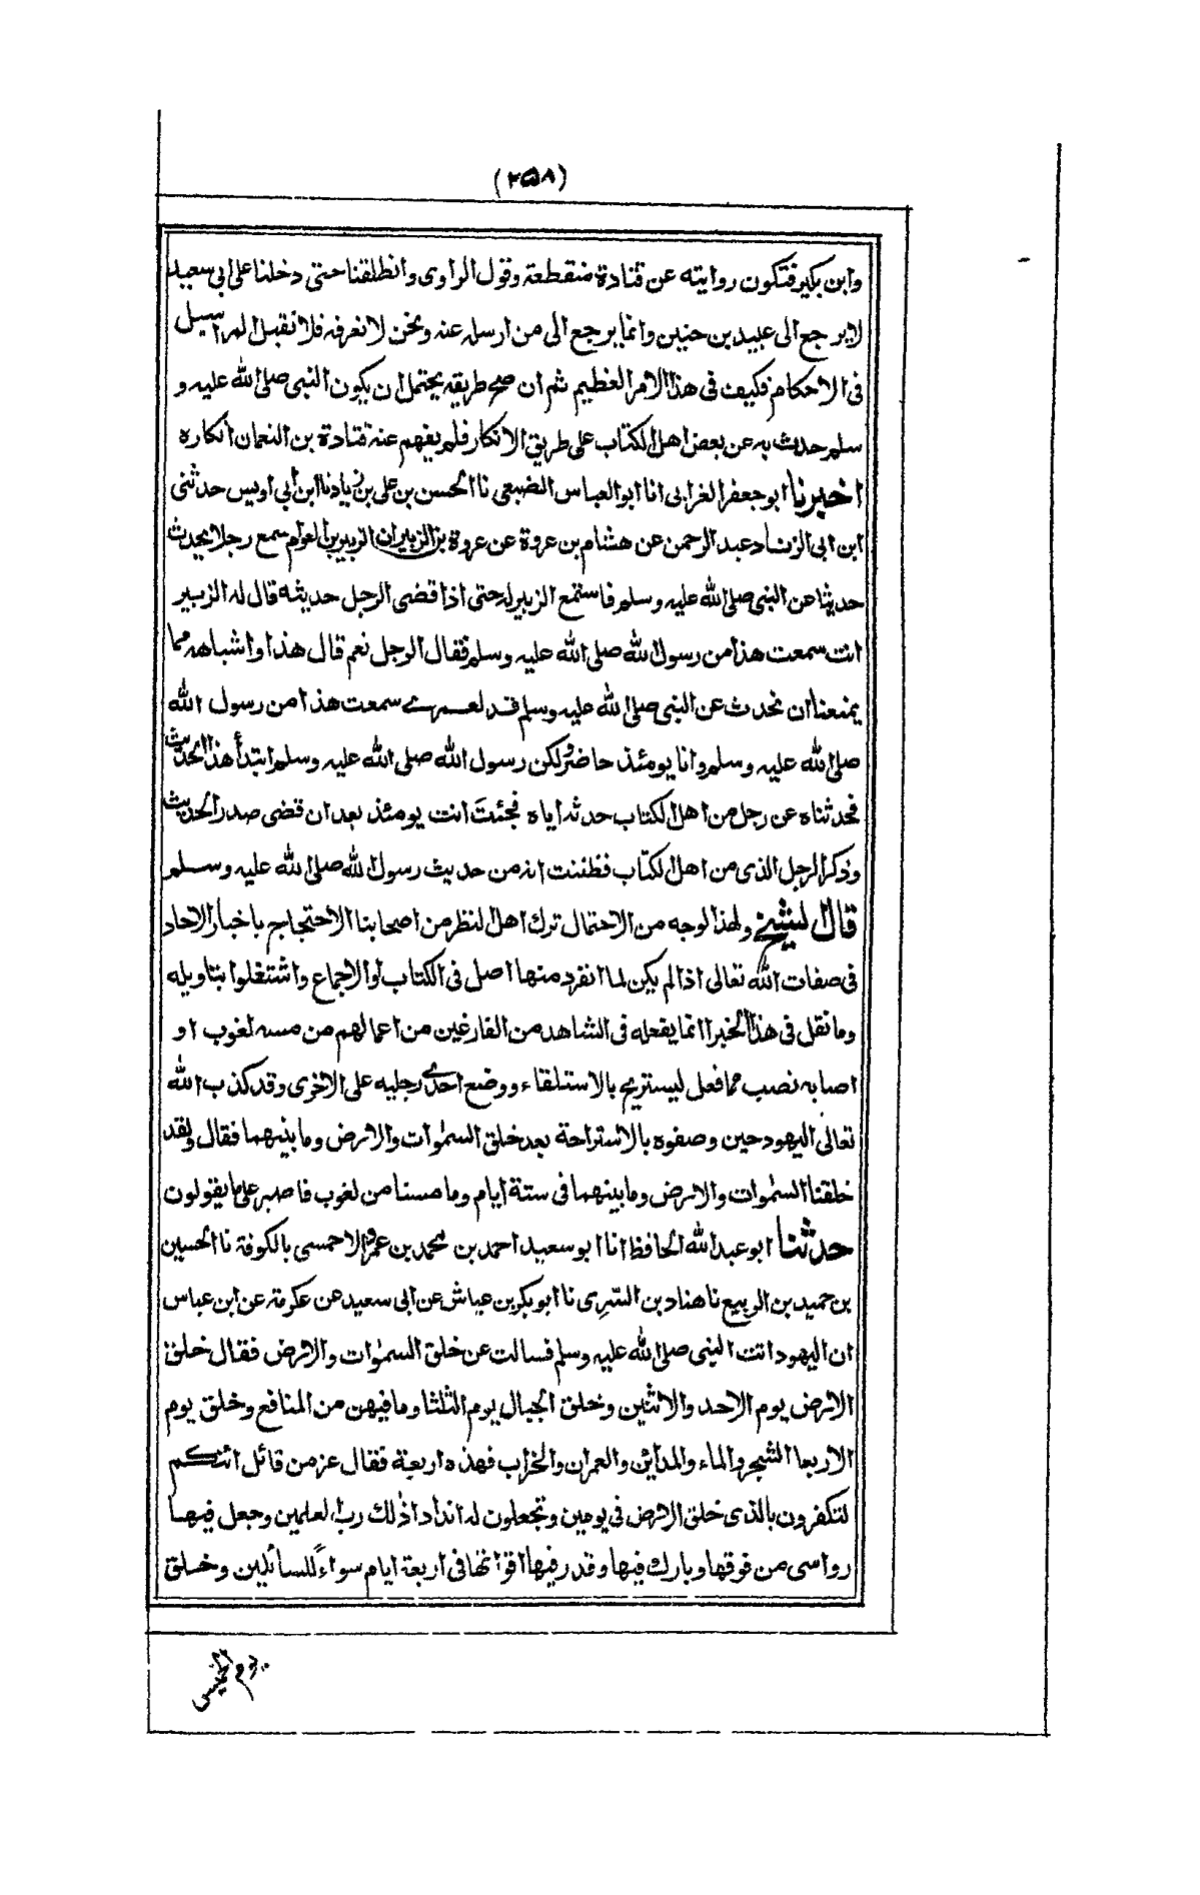 (٢٥٨)
وابن بكير فتكون روايته عن قتادة منقطعة وقول الراوى وانطلقنا حتى دخلنا على ابى سعيد
لا يرجع الى عبيد بن حنين وانما يرجع الى من ارسله عنه ونحن لا نعرفه فلا نقبل المراسيل
فى الاحكام فكيف فى هذا الامر العظيم ثم ان صح طريقه يحتمل ان يكون النبى صلى الله عليه و
سلم حدث به عن بعض اهل الكتاب على طريق الانكار فلم يفهم عنه قتادة بن النعمان انكاره
اخبرنا ابو جعفر الغرابى انا ابو العباس الضبعى نا الحسن بن على بن زياد نا ابن ابى اويس حدثنى
ابن ابى الزناد عبد الرحمن عن هشام بن عروة عن عروة بن الزبير ان الزبير بن العوام سمع رجلا يحدث
حديثا عن النبى صلى الله عليه وسلم فاستمع الزبير له حتى اذا قضى الرجل حديثه قال له الزبير
انت سمعت هذا من رسول الله صلى الله عليه وسلم فقال الرجل نعم قال هذا واشباهه مما
يمنعنا ان نحدث عن النبى صلى الله عليه وسلم قد لعمرى سمعت هذا من رسول الله
صلى الله عليه وسلم وانا يومئذ حاضر ولكن رسول الله صلى الله عليه وسلم ابتدأ هذا الحديث
فحدثناه عن رجل من اهل الكتاب حدثه اياه فجئتَ انت يومئذ بعد ان قضى صدر الحديث
وذكر الرجل الذى من اهل الكتاب فظننت انه من حديث رسول الله صلى الله عليه وسلم
قال الشيخ ولهذا الوجه من الاحتمال ترك اهل النظر من اصحابنا الاحتجاج باخبار الاحاد
فى صفات الله تعالى اذا لم يكن لما انفرد منها اصل فى الكتاب او الاجماع واشتغلوا بتاويله
وما نقل فى هذا الخبر انما يفعله فى الشاهد من الفارغين من اعمالهم من مسه لغوب او
اصابه نصب مما فعل ليستريح بالاستلقاء ووضع احدى رجليه على الاخرى وقد كذب الله
تعالى اليهود حين وصفوه بالاستراحة بعد خلق السمٰوات والارض وما بينهما فقال ولقد
خلقنا السمٰوات والارض وما بينهما فى ستة ايام وما مسنا من لغوب فاصبر على ما يقولون
حدثنا ابو عبد الله الحافظ انا ابو سعيد احمد بن محمد بن عمرو الاحمسى بالكوفة نا الحسين
بن حميد بن الربيع نا هناد بن السَرِى نا ابو بكر بن عياش عن ابى سعيد عن عكرمة عن ابن عباس
ان اليهود اتت النبى صلى الله عليه وسلم فسالت عن خلق السمٰوات والارض فقال خلق
الارض يوم الاحد والاثنين وخلق الجبال يوم الثلثا وما فيهن من المنافع وخلق يوم
الاربعا الشجر والماء والمدائن والعمران والخراب فهذه اربعة فقال عز من قائل ائنكم
لتكفرون بالذى خلق الارض فى يومين وتجعلون له اندادا ذٰلك رب العٰلمين وجعل فيها
رواسى من فوقها وبارك فيها وقدر فيها اقواتها فى اربعة ايام سواءً للسائلين وخلق
يوم الخميس